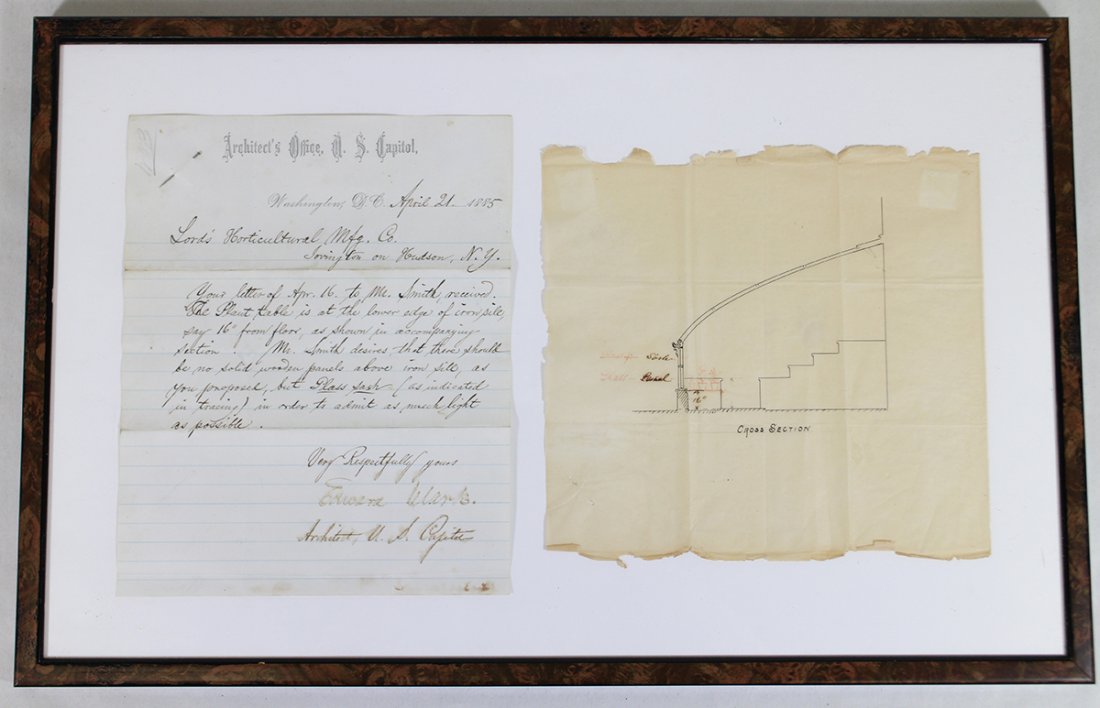 Architect's Office, U. S. Capitol,
Washington, D.C. April 21. 1885
Lord's Horticultural Mfg. Co.
Irvington on Hudson, N.Y.
Your letter of Apr. 16 to Mr. Smith, received.
The Plant table is at the lower edge of iron sill,
say 16" from floor, as shown in accompanying
section. Mr. Smith desires that there should
be no solid wooden panels above iron sill, as
you proposed, but Glass sash (as indicated
in tracing) in order to admit as much light
as possible.
Very Respectfully yours
Edward Clark.
Architect, U. S. Capitol
Sash
Glass Panel
16"
CROSS SECTION